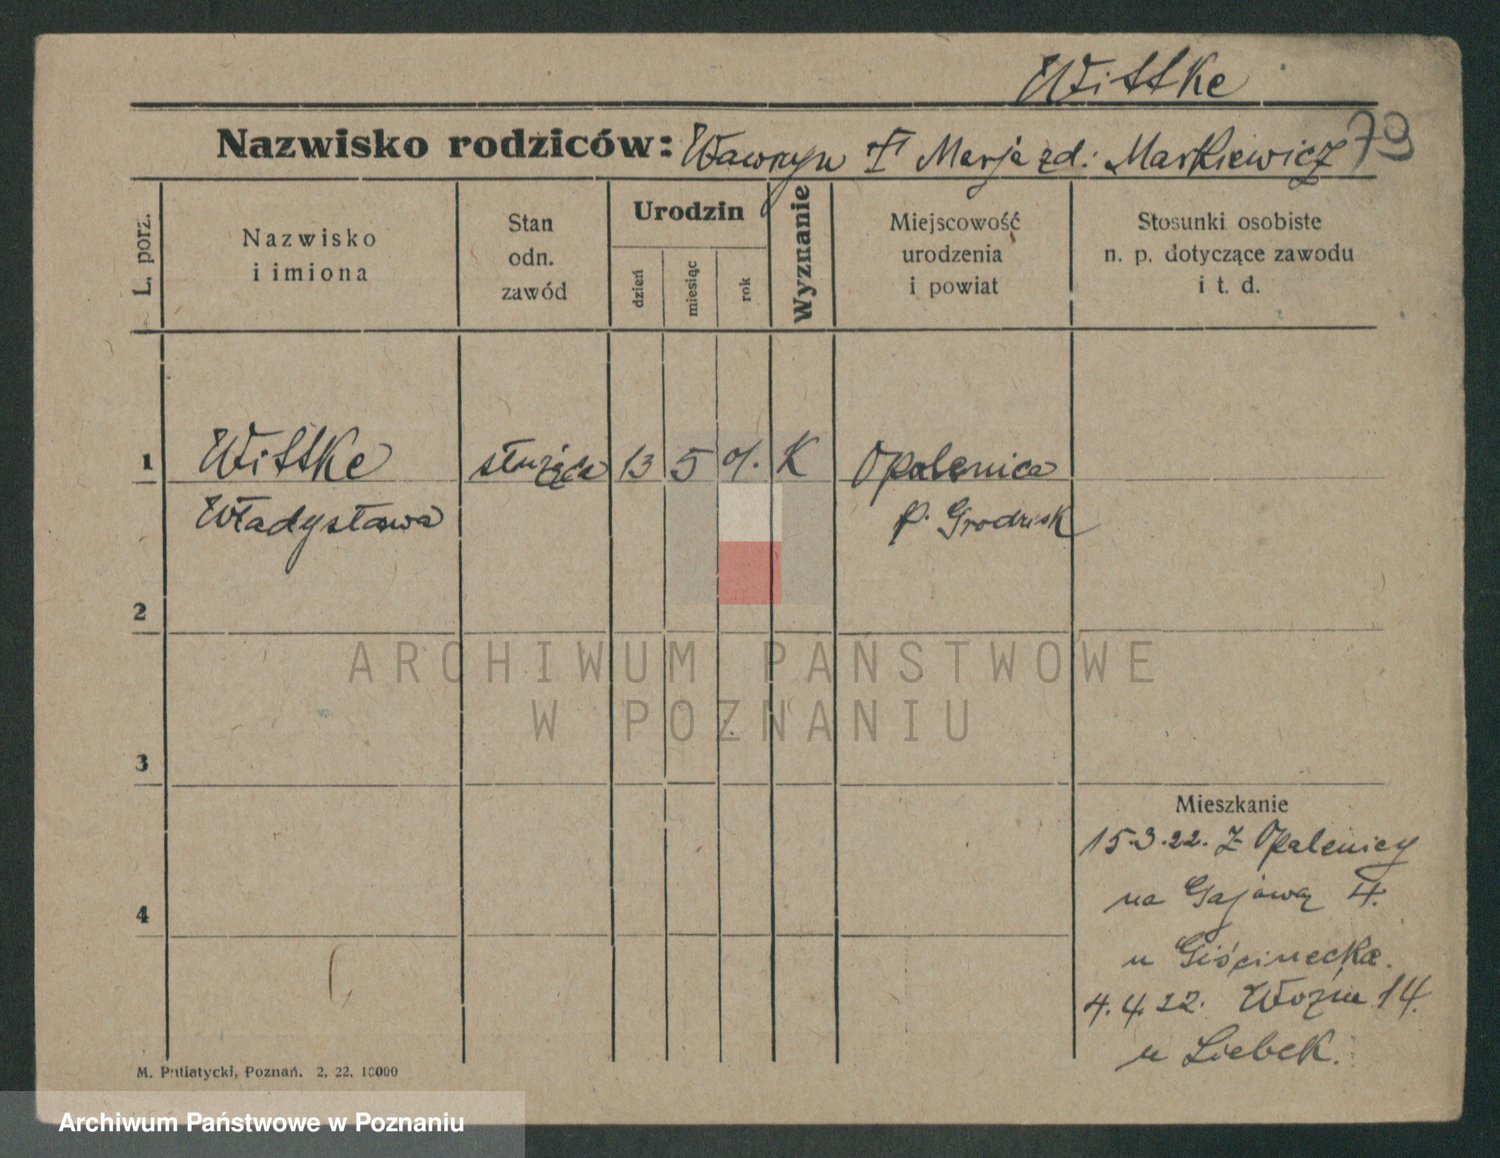 Wittke
Nazwisko rodziców: Wawrzyn i Marja zd: Markiewicz 79
L. porz.
Nazwisko i imiona
Stan odn. zawód
Urodzin
dzień
miesiąc
rok
Wyznanie
Miejscowość urodzenia i powiat
Stosunki osobiste n. p. dotyczące zawodu i t. d.
1 Wittke służąca 13 5 01. K Opalenica
Władysława p. Grodzisk
2
ARCHIWUM PAŃSTWOWE
W POZNANIU
3
Mieszkanie
15.3.22. Z Opalenicy
na Gajową 4.
4
u
4.4.22. Woźna 14.
u Liebek.
M. Putiatycki, Poznań. 2. 22. 10000
Archiwum Państwowe w Poznaniu